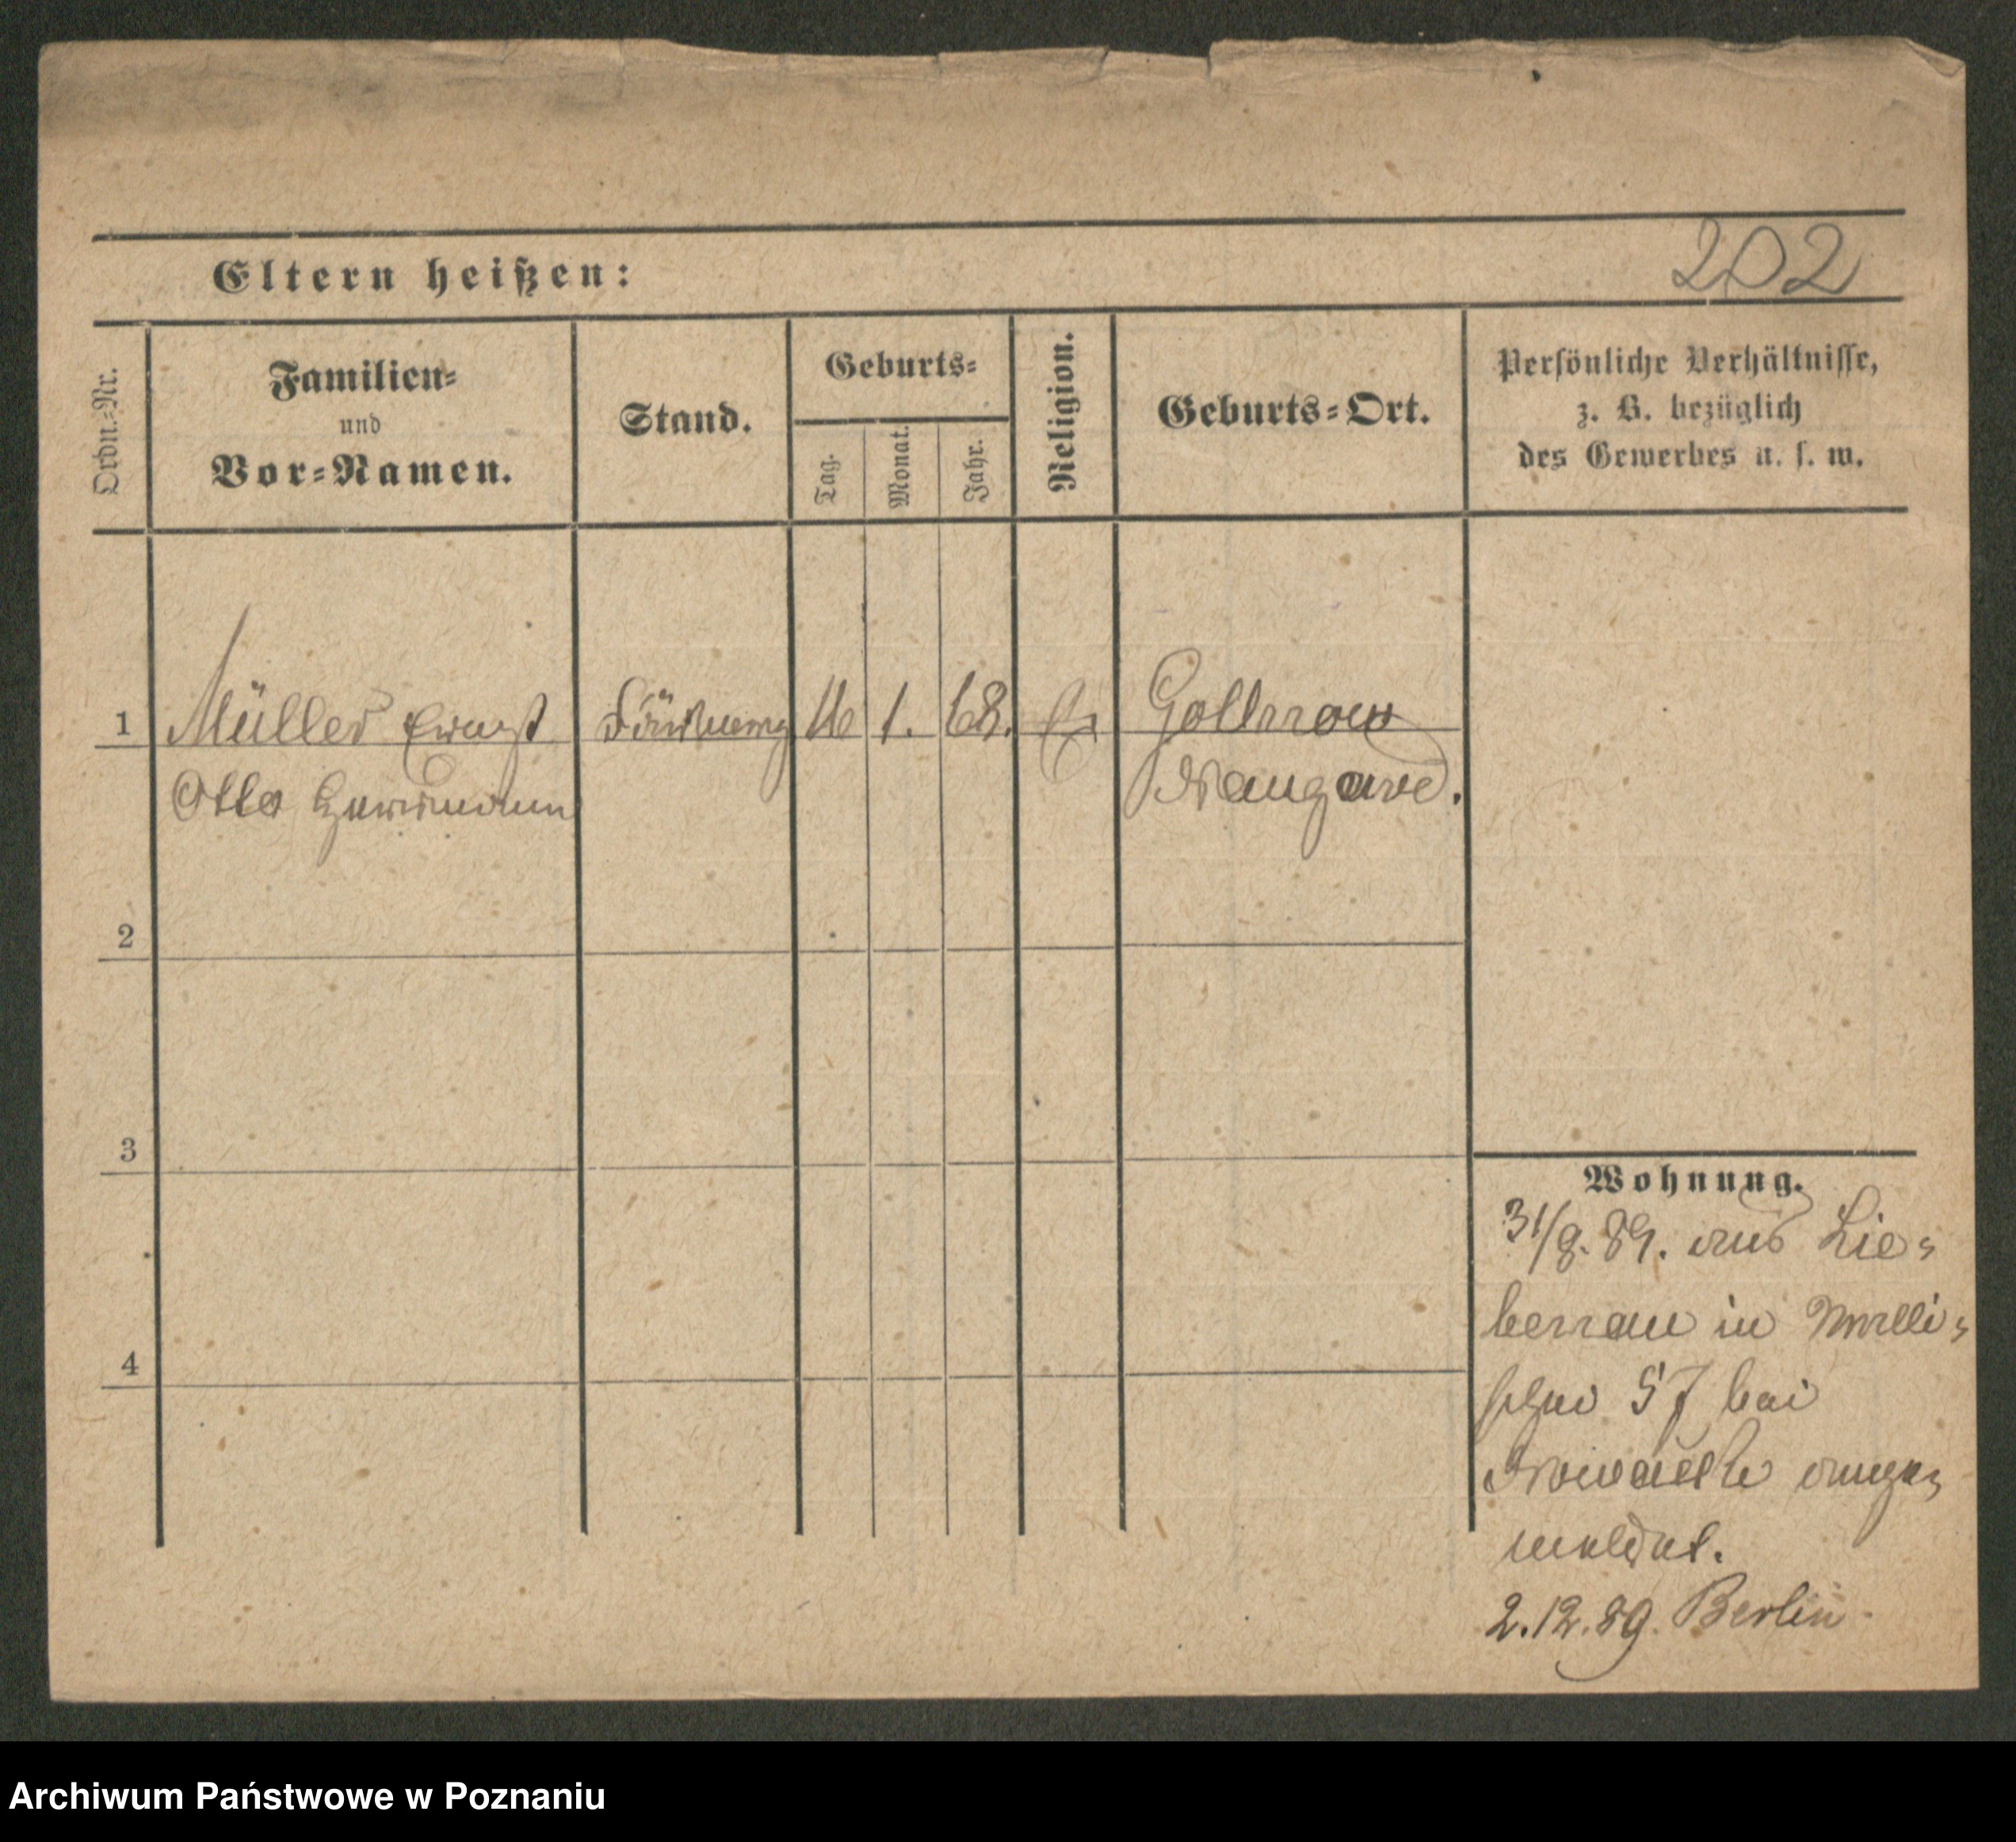 202
Eltern heißen:
Ordn.-Nr.
Familien-
und
Vor-Namen.
Stand.
Geburts-
Tag.
Monat.
Jahr.
Religion.
Geburts-Ort.
Persönliche Verhältnisse,
z. B. bezüglich
des Gewerbes u. s. w.
1 Müller Ernst 16 1. 68. Gollnow
Otto Hermann Naugard.
2
3
4
Wohnung.
31/8. 89. aus Lie-
benau in
57 bei
ange-
meldet.
2.12.89. Berlin
Archiwum Państwowe w Poznaniu